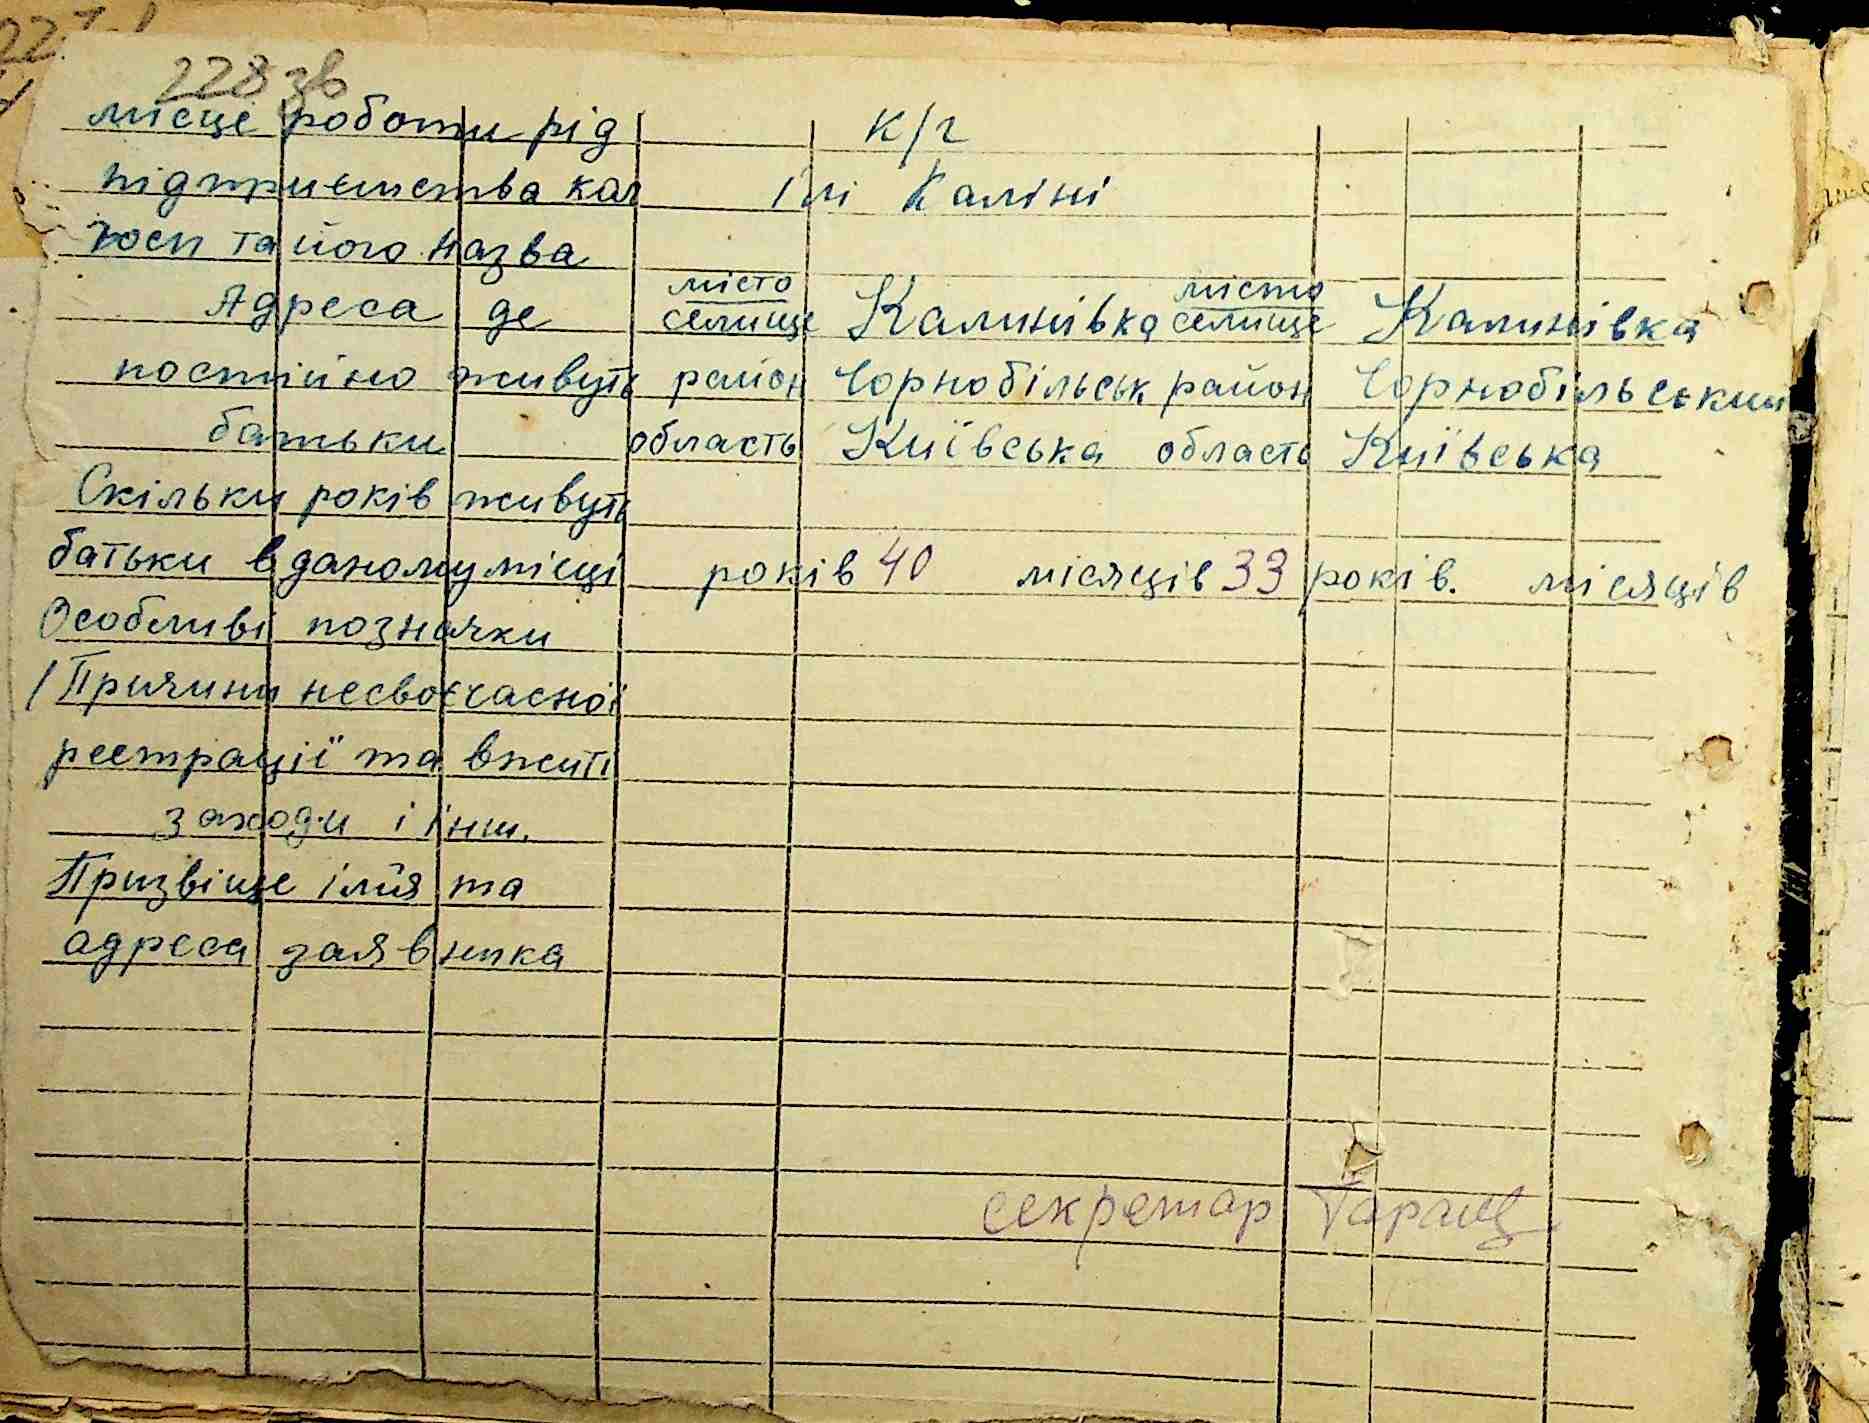 228 зв
місце роботи рід к/г
підприємства кол імі Каліні
госп та його назва
Адреса де місто селище Калинівка місто селище Калинівка
постійно живуть район Чорнобільськ район Чорнобільський
батьки область Київська область Київська
Скільки років живуть
батьки в даному місці років 40 місяців 33 років. місяців
Особливі позначки
/Причини несвоєчасної
реєтрації та вжиті
заходи і інш.
Призвіще ім'я та
адреса заявника
секретар